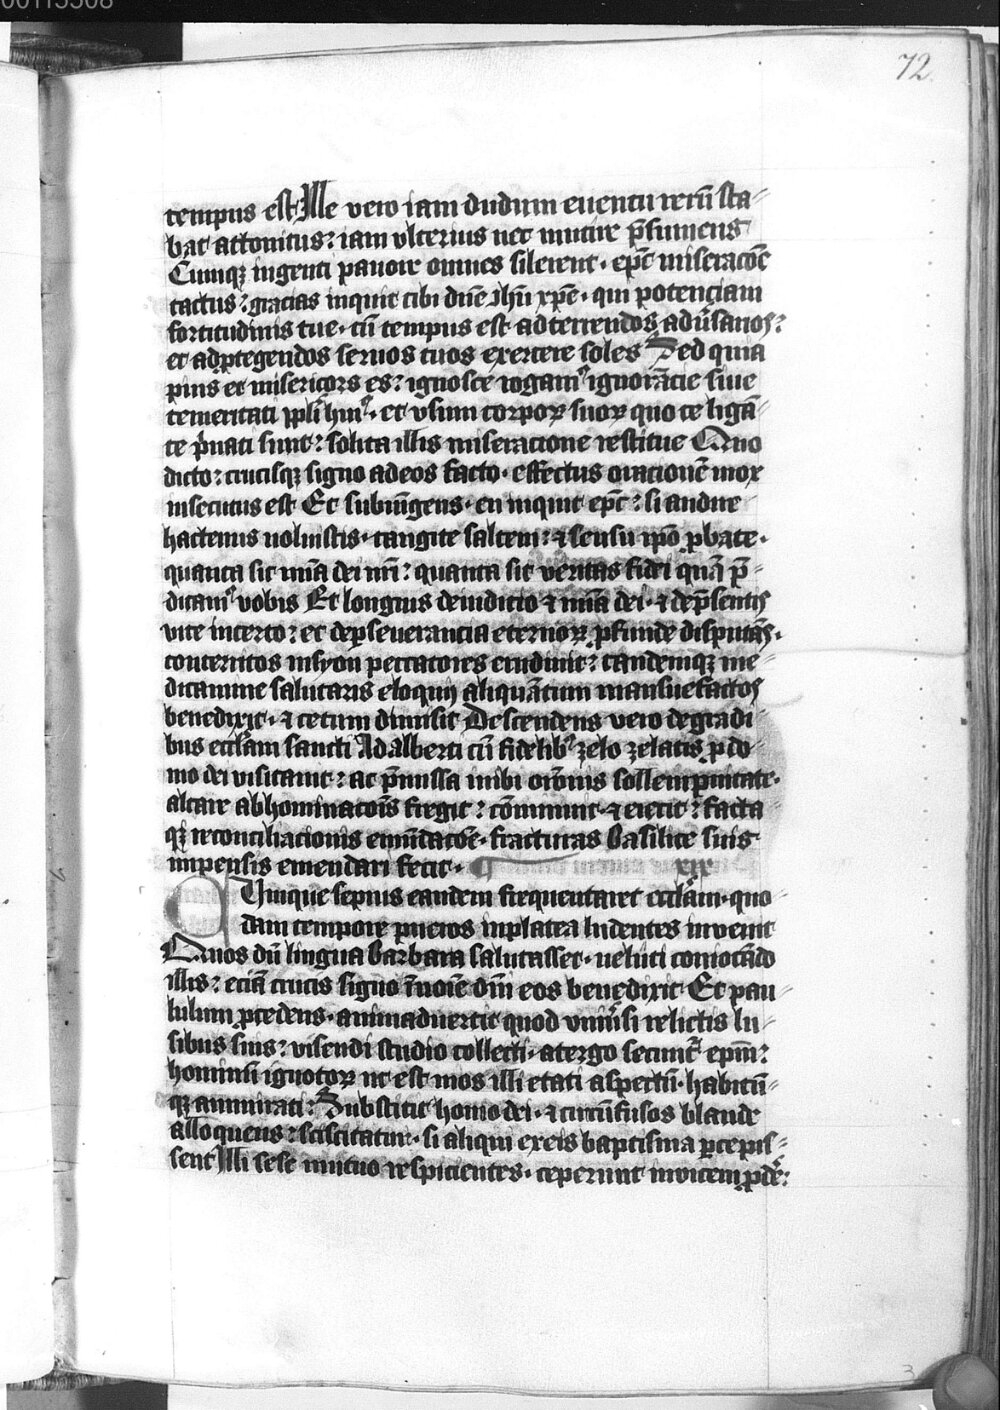 00115508
72.
tempus est Ille vero iam dudum euentu rerū sta
bat attonitus: iam vlterius nec mutire p̄sumens
Cumqꝫ ingenti pauore omnes silerent· ep̄c miseracōe
tactus: gracias inquit tibi dn̄e Jhū xp̄e· qui potenciam
fortitudinis tue· cū tempus est ad terrendos adūsarios:
et ad ꝓtegendos seruos tuos exercere soles Sed quia
pius et misericors es: ignosce rogamꝰ ignorācie siue
temeritati ppl̄i hui'· et vsum corpoꝝ suoꝝ quo te ligā
te p̄uati sunt: solita illis miseracione restitue Quo
dicto: crucisqꝫ signo ad eos facto· effectus oracionē mox
insecutus est Et subiūgens· en inquit ep̄c: si audire
hactenus noluistis· tangite saltem: ⁊ sensu ip̄o ꝓbate·
quanta sit mīa dei nr̄i: quanta sit veritas fidei quā p̄
dicamꝰ vobis Et longius de iudicio ⁊ mīa dei· ⁊ de p̄sentis
vite incerto: et de ꝑseuerancia eternoꝝ ꝓfunde disputās·
conterritos in syon peccatores erudiuit: tandemqꝫ me
dicamine salutaris eloquij aliquātum mansuefactos
benedixit· ⁊ cetum dimisit Descendens vero de gradi
bus eccl̄iam sancti Adalberti cū fidelibꝰ zelo zelatis ꝓ do
mo dei visitauit: ac p̄missa inibi orōnis sollempnitate·
altare abhominacōis fregit: cōminuit· ⁊ eiecit: facta
qꝫ reconciliacionis emūdacōe· fracturas Basilice suis
impensis emendari fecit· ¶ xix
Quique sepius eandem frequentaret eccl̄iam· quo
dam tempore pueros in platea ludentes inuenit
Quos dū lingua Barbara salutasset· veluti coniocādo
illis: eciā crucis signo ī noīe dn̄i eos benedixit Et pau
lulum ꝓcedens· animaduertit quod vniūsi relictis lu
sibus suis: visendi studio collecti· a tergo secuntᷣ ep̄m:
hominū ignotoꝝ ut est mos illi etati aspectū· habitū
qꝫ ammirati: Substitit homo dei· ⁊ circūfusos blande
alloquens: sciscitatur· si aliqui ex eis baptisma ꝑcepis
sent Illi sese mutuo respicientes· ceperunt inuicem ꝓde͛:
3